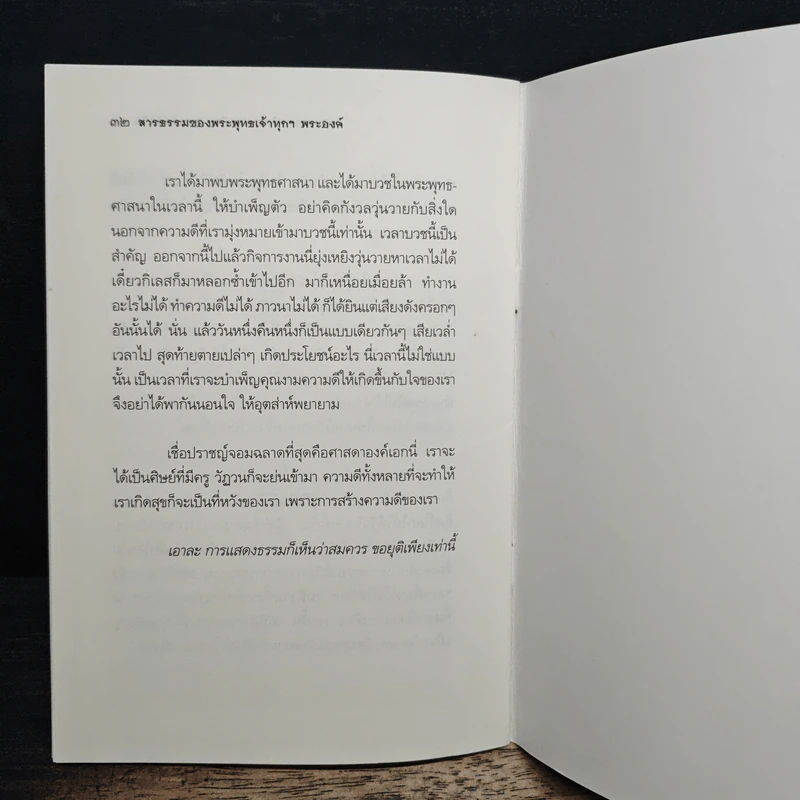 ๓๒ สารธรรมของพระพุทธเจ้าทุกๆ พระองค์
เราได้มาพบพระพุทธศาสนา และได้มาบวชในพระพุทธ-
ศาสนาในเวลานี้ ให้บำเพ็ญตัว อย่าคิดกังวลวุ่นวายกับสิ่งใด
นอกจากความดีที่เรามุ่งหมายเข้ามาบวชนี้เท่านั้น เวลาบวชนี้เป็น
สำคัญ ออกจากนี้ไปแล้วกิจการงานนี่ยุ่งเหยิงวุ่นวายหาเวลาไม่ได้
เดี๋ยวกิเลสก็มาหลอกซ้ำเข้าไปอีก มาก็เหนื่อยเมื่อยล้า ทำงาน
อะไรไม่ได้ ทำความดีไม่ได้ ภาวนาไม่ได้ ก็ได้ยินแต่เสียงดังครอกๆ
อันนั้นได้ นั่น แล้ววันหนึ่งคืนหนึ่งก็เป็นแบบเดียวกันๆ เสียเวล่ำ
เวลาไป สุดท้ายตายเปล่าๆ เกิดประโยชน์อะไร นี่เวลานี้ไม่ใช่แบบ
นั้น เป็นเวลาที่เราจะบำเพ็ญคุณงามความดีให้เกิดขึ้นกับใจของเรา
จึงอย่าได้พากันนอนใจ ให้อุตส่าห์พยายาม
เชื่อปราชญ์จอมฉลาดที่สุดคือศาสดาองค์เอกนี่ เราจะ
ได้เป็นศิษย์ที่มีครู วัฏวนก็จะย่นเข้ามา ความดีทั้งหลายที่จะทำให้
เราเกิดสุขก็จะเป็นที่หวังของเรา เพราะการสร้างความดีของเรา
เอาละ การแสดงธรรมก็เห็นว่าสมควร ขอยุติเพียงเท่านี้